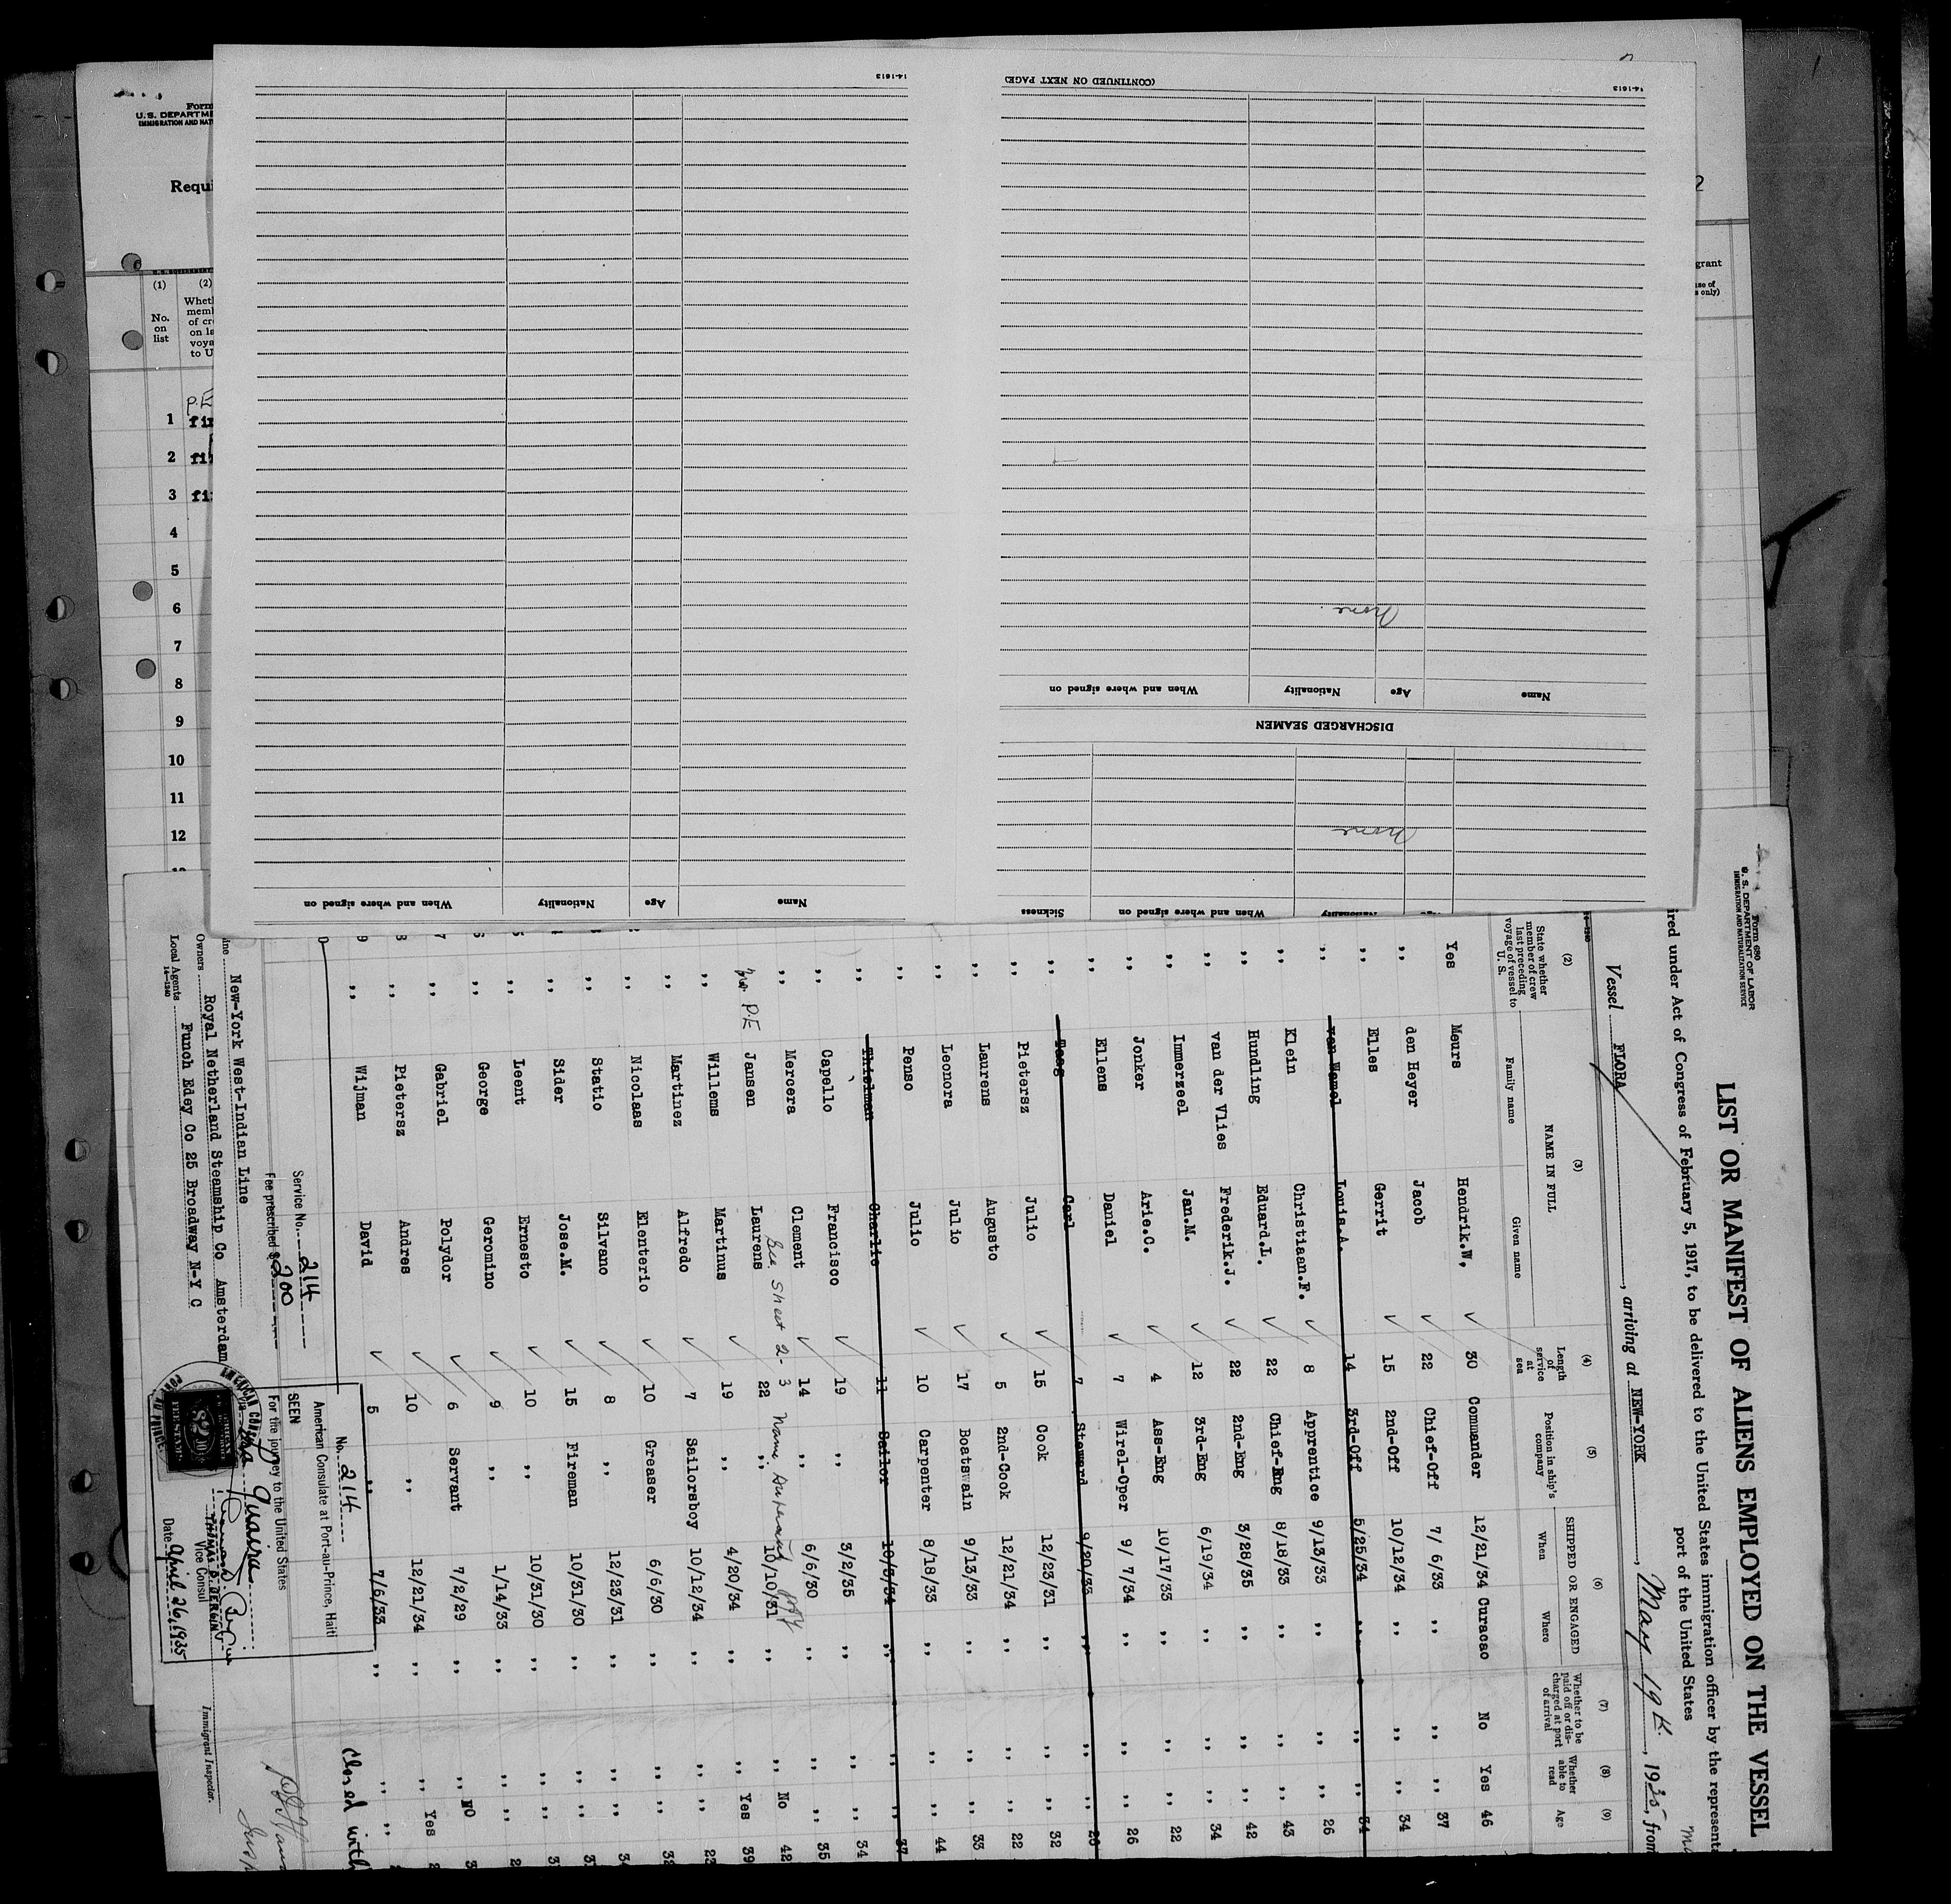 Form
U. S. DEPARTME
IMMIGRATION AND NAT
Requi
(1)
(2)
No.
on
list
Whet
mem
of cr
on la
voya
to U
P.E
1 fir
2 fir
3 fir
4
5
6
7
8
9
10
11
12
grant
use of
s only)
14-1613
When and where signed on
Nationality
Age
Name
Sickness
When and where signed on
Nationality
none
DISCHARGED SEAMEN
Name
Age
Nationality
When and where signed on
none
(CONTINUED ON NEXT PAGE)
14-1613
Form 680
U. S. DEPARTMENT OF LABOR
IMMIGRATION AND NATURALIZATION SERVICE
LIST OR MANIFEST OF ALIENS EMPLOYED ON THE VESSEL
ired under Act of Congress of February 5, 1917, to be delivered to the United States immigration officer by the represent
port of the United States
Vessel FLORA, arriving at NEW-YORK, May 1st, 1935, from
14-1240
(2) State whether member of crew last preceding voyage of vessel to U. S.
(3) NAME IN FULL
Family name
Given name
(4) Length of service at sea
(5) Position in ship's company
(6) SHIPPED OR ENGAGED
When
Where
(7) Whether to be paid off or discharged at port of arrival
(8) Whether able to read
(9) Age
Yes Meurs Hendrik.W, 30 Commander 12/21/34 Curacao No Yes 46
,, den Heyer Jacob 22 Chief-Off 7/ 6/33 ,, ,, ,, 37
,, Elles Gerrit 15 2nd-Off 10/12/34 ,, ,, ,, 34
,, van Wamel Louis.A. 14 3rd-Off 5/25/34 ,, ,, ,, 34
,, Klein Christiaan.F. 8 Apprentice 9/13/33 ,, ,, ,, 26
,, Hundling Eduard.L. 22 Chief-Eng 8/18/33 ,, ,, ,, 43
,, van der Vlies Frederik.J. 22 2nd-Eng 3/28/35 ,, ,, ,, 42
,, Immerzeel Jan.M. 12 3rd-Eng 6/19/34 ,, ,, ,, 34
,, Jonker Arie.C. 4 Ass-Eng 10/17/33 ,, ,, ,, 22
,, Ellens Daniel 7 Wirel-Oper 9/ 7/34 ,, ,, ,, 26
,, Carl 7 Steward 9/20/33 ,, ,, ,,
,, Pietersz Julio 15 Cook 12/23/31 ,, ,, ,, 32
,, Laurens Augusto 5 2nd-Cook 12/21/34 ,, ,, ,, 22
,, Leonora Julio 17 Boatswain 9/13/33 ,, ,, ,, 33
,, Penso Julio 10 Carpenter 8/18/33 ,, ,, ,, 44
,, Thielman Charlie 11 Sailor 10/3/34 ,, ,, ,, 37
,, Capello Francisco 19 ,, 3/2/35 ,, ,, ,, 34
,, Mercera Clement 14 ,, 6/6/30 ,, ,, ,, 35
See Sheet 2-3 Name
P.E Jansen Laurens 22 ,, 10/10/31 ,, ,, No 42
,, Willems Martinus 19 ,, 4/20/34 ,, ,, Yes 39
,, Martinez Alfredo 7 Sailorsboy 10/12/34 ,, ,, ,, 23
,, Nicolaas Elenterio 10 Greaser 6/6/30 ,, ,, ,, 32
,, Statio Silvano 8 ,, 12/23/31 ,, ,, ,,
,, Sider Jose.M. 15 Fireman 10/31/30 ,, ,, ,,
,, Leent Ernesto 10 ,, 10/31/30 ,, ,, ,,
,, George Geromino 9 ,, 1/14/33 ,, ,, ,,
,, Gabriel Polydor 6 Servant 7/2/29 ,, ,, NO
,, Pietersz Andres 10 ,, 12/21/34 ,, ,, Yes
,, Wijman David 5 ,, 7/6/33 ,, ,, ,,
Closed with
Service No. 214
Fee prescribed $ 200
No. 214
American Consulate at Port-au-Prince, Haiti
SEEN
For the journey to the United States
Via La Guaira
Vice Consul
Date April 26, 1935
AMERICAN CONSUL
PORT AU PRINCE
$2
FEE STAMP
ine New-York West-Indian Line
Owners Royal Netherland Steamship Co Amsterdam
Local Agents Funch Edey Co 25 Broadway N-Y C
14-1240
Immigrant Inspector.